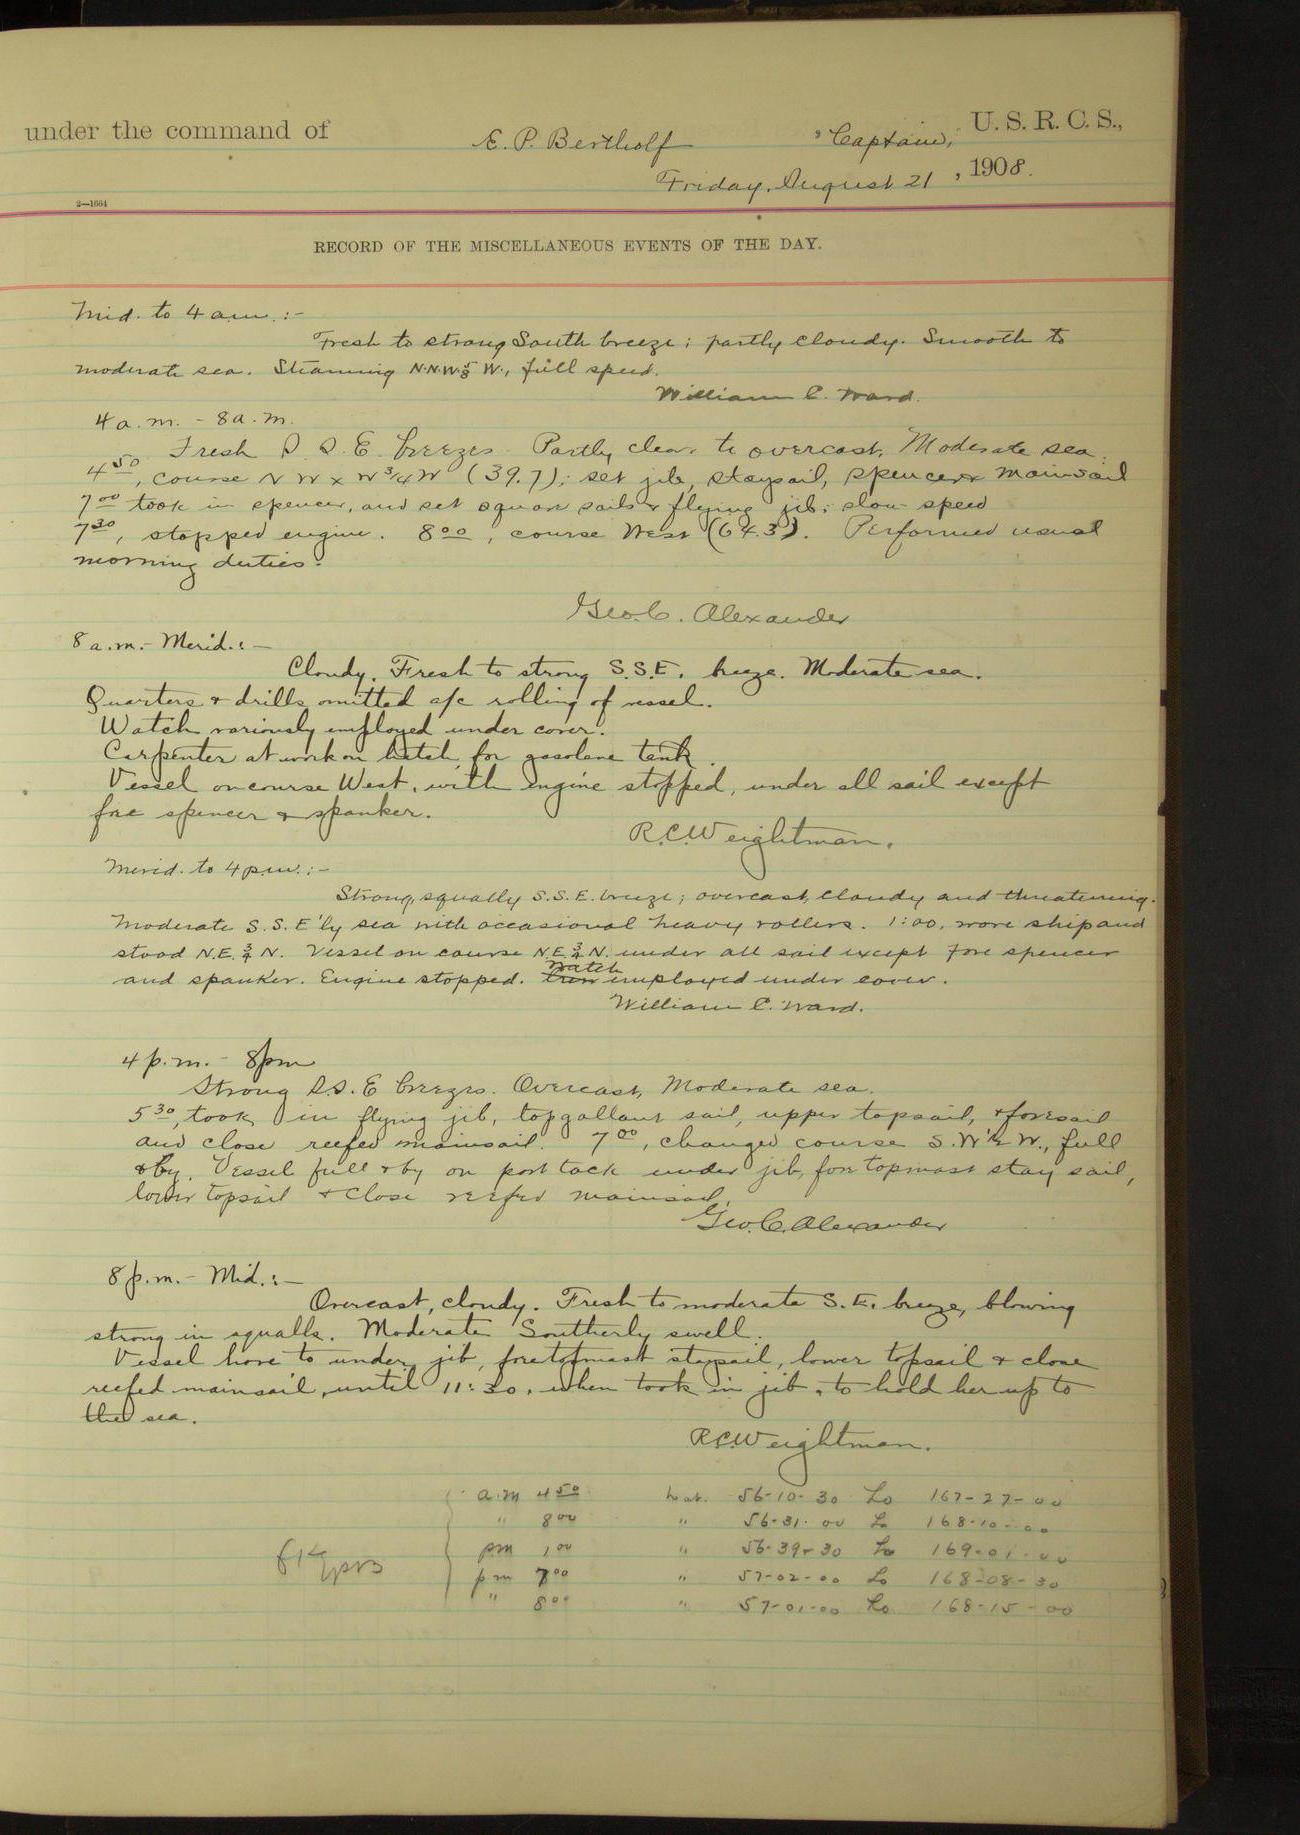 under the command of E. P. Bertholf , Captain, U. S. R. C. S.,
Friday, August 21 , 1908.
2—1664
RECORD OF THE MISCELLANEOUS EVENTS OF THE DAY.
Mid. to 4 a.m.:-
Fresh to strong South breeze; partly cloudy. Smooth to
moderate sea. Steaming N.N.W.⅝ W., full speed.
William C. Ward.
4 a.m. - 8 a.m.
Fresh S. S. E. breezes. Partly clear to overcast, Moderate sea.
4 50, course N W x W ¾ W (39.7); set jib, staysail, spencer & mainsail
7 00 took in spencer, and set square sails & flying jib; slow speed
7 30, stopped engine. 8 00, course West (64.3). Performed usual
morning duties.
Geo. C. Alexander
8 a.m.- Merid.:-
Cloudy. Fresh to strong S.S.E. breeze. Moderate sea.
Quarters & drills omitted a/c rolling of vessel.
Watch variously employed under cover.
Carpenter at work on hatch for gasolene tank.
Vessel on course West, with engine stopped, under all sail except
fore spencer & spanker.
R.C. Weightman.
Merid. to 4 p.m.:-
Strong, squally S.S.E. breeze; overcast, cloudy and threatening.
Moderate S.S.E'ly sea with occasional heavy rollers. 1:00, wore ship and
stood N.E. ¾ N. Vessel on course N.E. ¾ N. under all sail except fore spencer
and spanker. Engine stopped. Watch employed under cover.
William C. Ward.
4 p.m. - 8 pm
Strong S.S. E breezes. Overcast, Moderate sea.
5 30, took in flying jib, topgallant sail, upper topsail, & foresail
and close reefed mainsail. 7 00, changed course S.W. x W., full
& by. Vessel full & by on port tack under jib, fore topmast stay sail,
lower topsail & close reefed mainsail.
Geo. C. Alexander
8 p.m.- Mid.:-
Overcast, cloudy. Fresh to moderate S.E. breeze, blowing
strong in squalls. Moderate Southerly swell.
Vessel hove to under jib, foretopmast staysail, lower topsail & close
reefed mainsail, until 11:30, when took in jib, to hold her up to
the sea.
R.C. Weightman.
a.m 4 50 Lat. 56-10-30 Lo 167-27-00
" 8 00 " 56-31-00 Lo 168-10-00
pm 1 00 " 56-39-30 Lo 169-01-00
pm 7 00 " 57-02-00 Lo 168-08-30
" 8 00 " 57-01-00 Lo 168-15-00